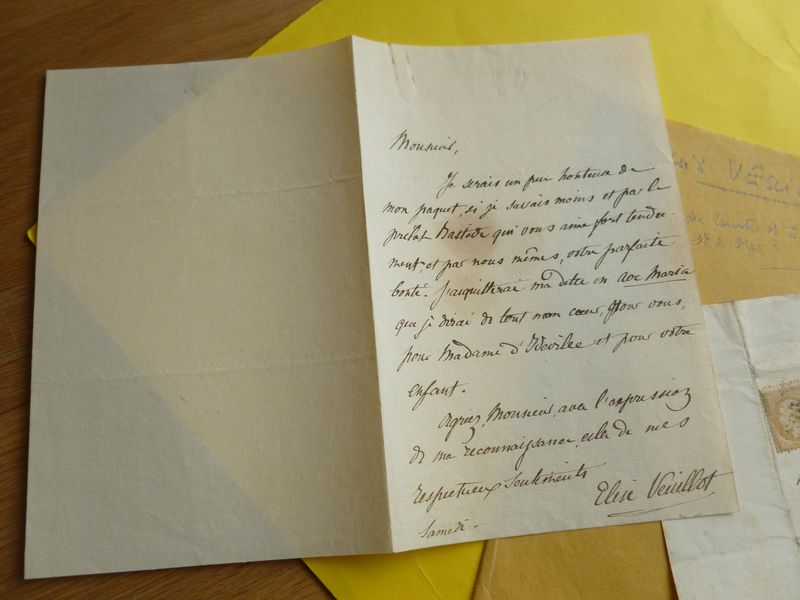 Monsieur,
Je serais un peu honteuse de
mon paquet, si je savais moins et par le
prélat Bastide qui vous aime fort tendre
ment, et par nous mêmes, votre parfaite
bonté. J'acquitterai ma dette en ave Maria
que je dirai de tout mon cœur, pour vous,
pour Madame d'Ideville et pour votre
enfant.
Agréez, Monsieur, avec l'expression
de ma reconnaissance, celle de mes
respectueux sentiments
Elise Veuillot
Samedi.